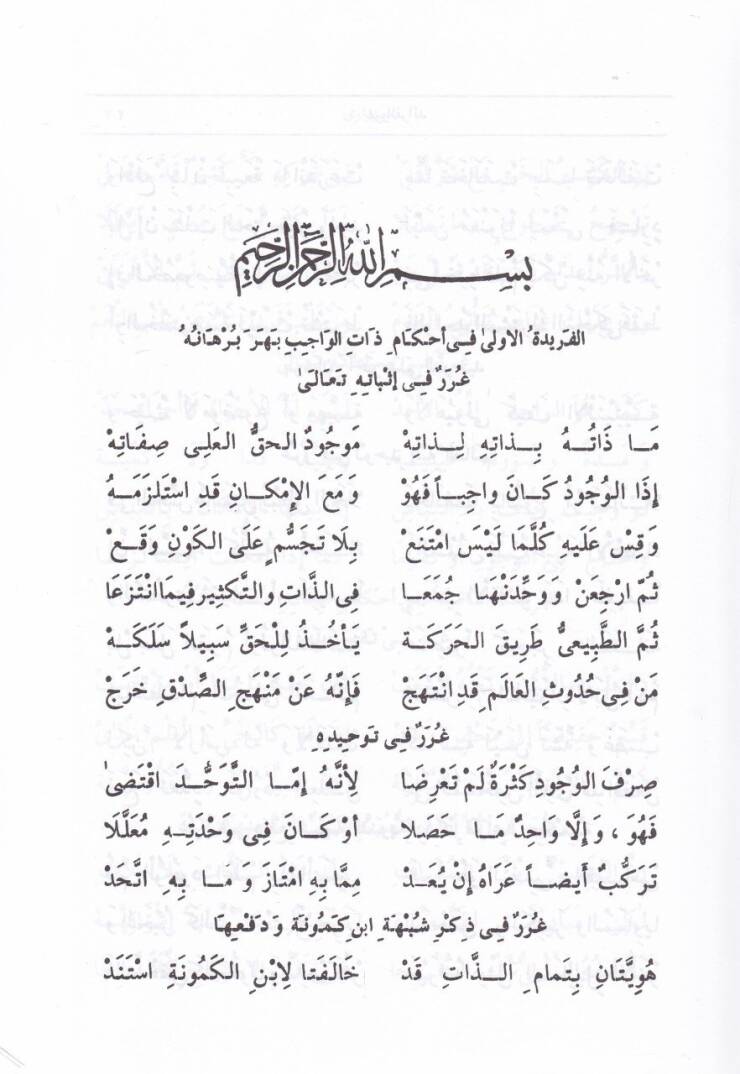 بِسْمِ اللهِ الرَّحْمنِ الرَّحيمِ
الفَريدَةُ الاولىٰ فِى أحْكامِ ذاتِ الواجِبِ بَهَرَ بُرْهانُهُ
غُرَرٌ فِى إثْباتِهِ تَعالَىٰ
مَا ذَاتُهُ بِذاتِهِ لِذاتِهْ مَوجُودٌ الحقُّ العَلى صِفَاتِهْ
إذَا الوُجُودُ كَانَ واجِباً فَهُوْ وَمَعَ الإمْكانِ قَدِ اسْتَلْزَمَهُ
وَقِس عَلَيهِ كُلَّمَا لَيْسَ امْتَنَعْ بِلا تَجَسُّمٍ عَلَى الكَوْنِ وَقَعْ
ثُمّ ارْجِعَنْ وَوَحِّدَنْهَا جُمَعَا فِى الذّاتِ والتَّكثِيرِ فِيمَا انْتَزَعَا
ثُمَّ الطَّبِيعىُّ طَرِيقَ الحَرَكَة يَأخُذُ لِلْحَقِّ سَبِيلاً سَلَكَهْ
مَنْ فِى حُدُوثِ العَالَمِ قَدِ انْتَهَجْ فَإنَّهُ عَنْ مَنْهَجِ الصِّدْقِ خَرَجْ
غُرَرٌ فِى تَوحِيدِهِ
صِرْفَ الوُجُودِ كَثْرَةٌ لَمْ تَعْرِضَا لِأنَّهُ إمّا التَّوَحُّدَ اقْتَضىٰ
فَهُوَ ، وَإلّا واحِدٌ مَا حَصلا أوْ كَانَ فِى وَحْدَتِهِ مُعَلَّلَا
تَرَكُّبٌ أيضاً عَراهُ إنْ يُعَدّ مِمّا بِهِ امْتازَ وَ مَا بِهِ اتَّحَدْ
غُرَرٌ فِى ذِكْرِ شُبْهَةِ ابنِ كَمُونَة وَ دَفْعِهَا
هُوِيَّتَانِ بِتَمامِ الذَّاتِ قَدْ خَالَفَتا لِابْنِ الكَمُونَةِ اسْتَنَدْ